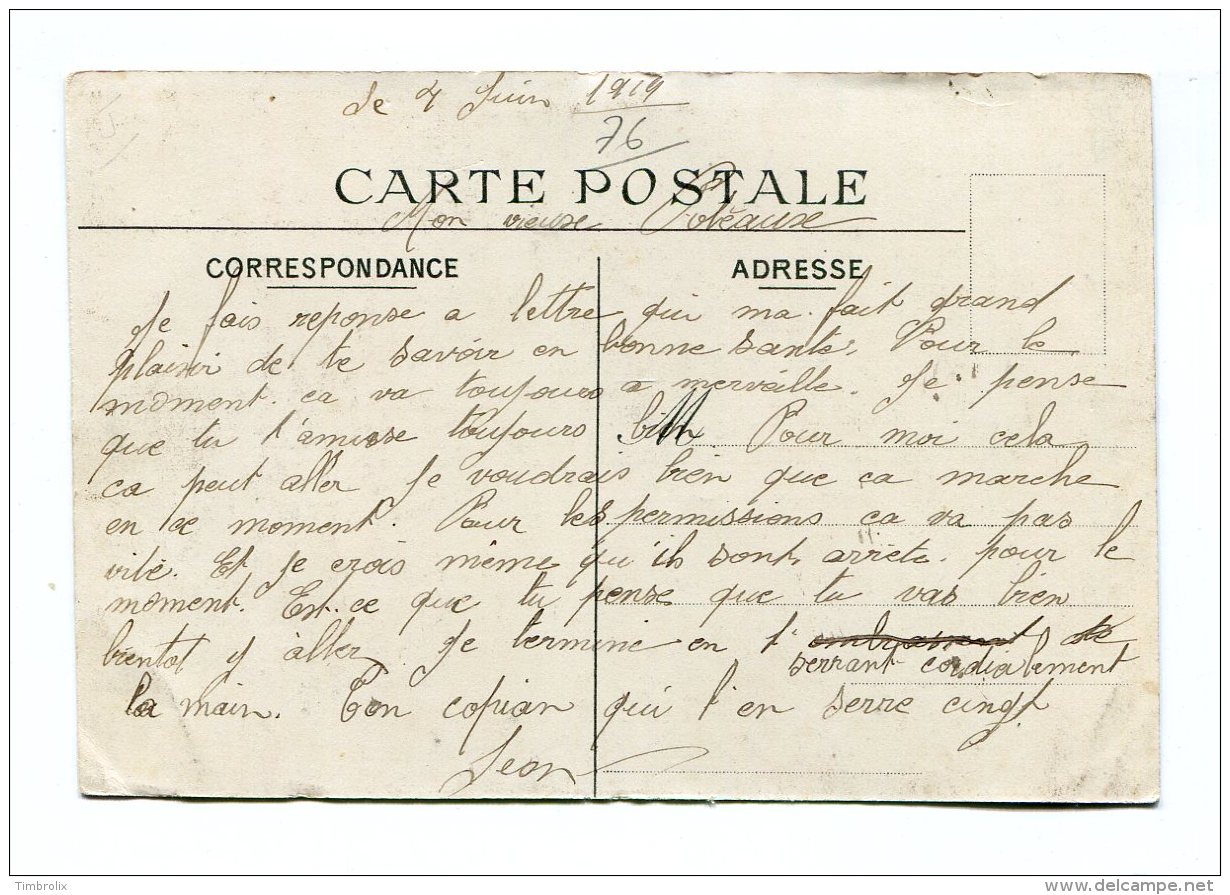 Le 4 Juin 1919
76
CARTE POSTALE
Mon vieuse
CORRESPONDANCE
ADRESSE
Je fais reponse a lettre qui ma fait grand
plaisir de te savoir en bonne sante. Pour le
moment ca va toujours a merveille. Je pense
que tu t'amuse toujours bien. Pour moi cela
ca peut aller Je voudrais bien que ca marche
en ce moment. Pour les permissions ca va pas
vite. Et je crois même qu'ils sont arrete pour le
moment. Est ce que tu pense que tu vas bien
bientot y aller. Je termine en t'
serrant cordialement
la main. Ton copian qui t'en serre cingt
Leon
Timbrolix
www.delcampe.net